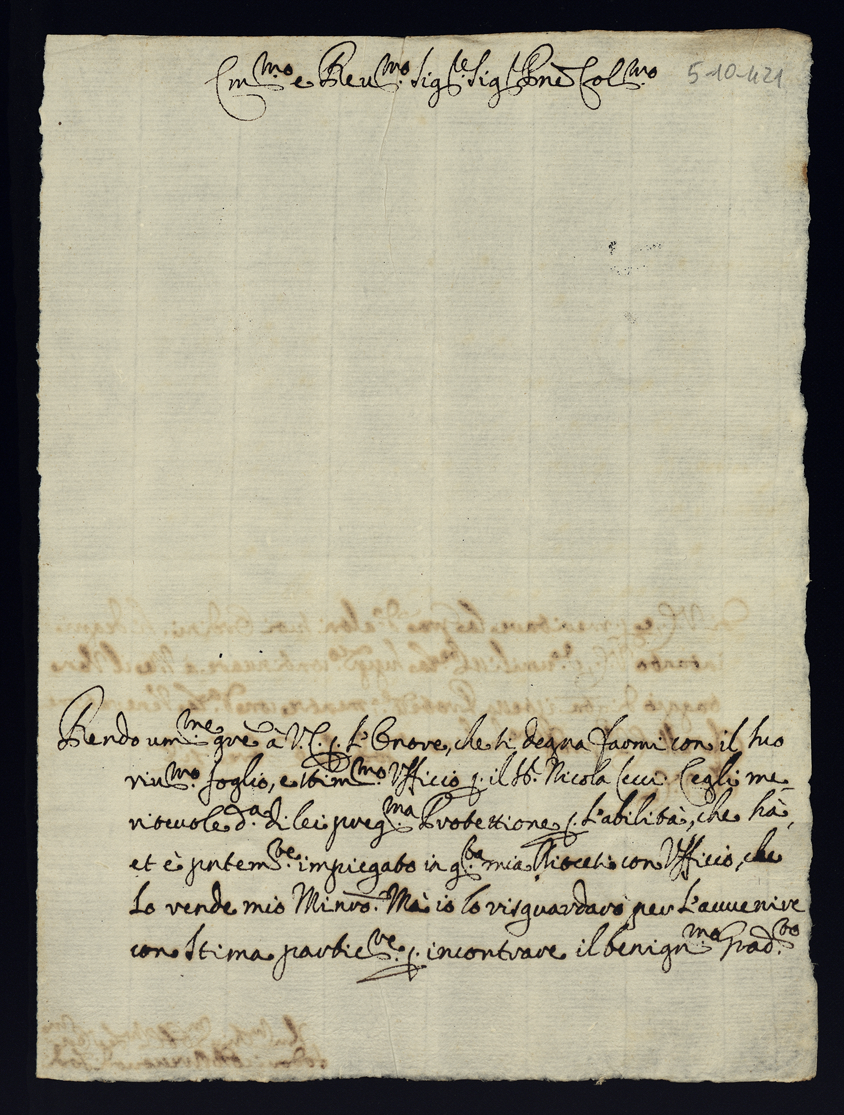 Em.mo e Reu.mo Sig.re Sig.r Pñe Col.mo
5-10-421
Rendo um.me gre à V.E. p. L'Onore, che si degna farmi con il suo
riu.mo foglio, e stim.mo Ufficio p. il Sr. Nicola Ceggli me-
riteuole d.a di lei preg.ma Protettione p. L'abilità, che hà,
et è pñtem.te impiegato in q.ta mia Diocesi con Ufficio, che
Lo rende mio Minrõ. Mà io lo risguardarò per L'auuenire
con Stima partic.re p. incontrare il benign.mo Grad.to